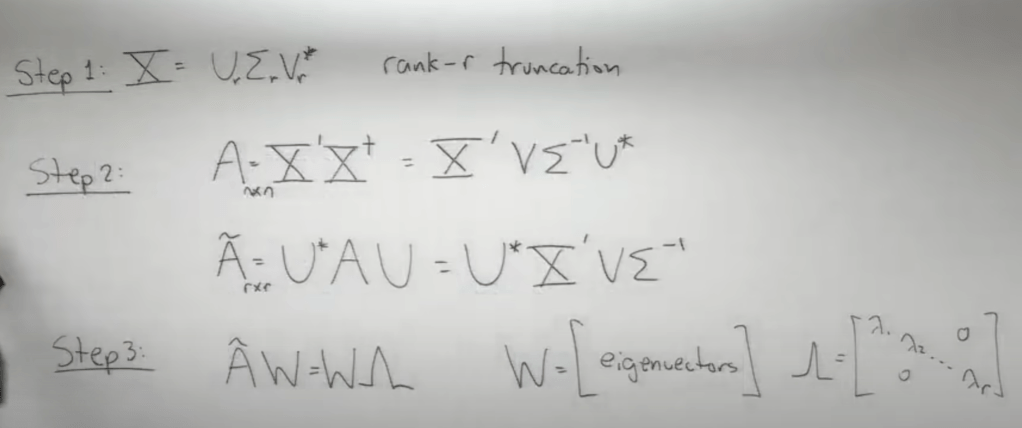 Step 1: X = UᵣΣᵣVᵣ* rank-r truncation
Step 2: A = X'X† = X'VΣ⁻¹U*
n×n
Ã = U*AU = U*X'VΣ⁻¹
r×r
Step 3: ÃW = WΛ W = [eigenvectors] Λ = [λ₁ λ₂ ⋱ λᵣ 0 0]